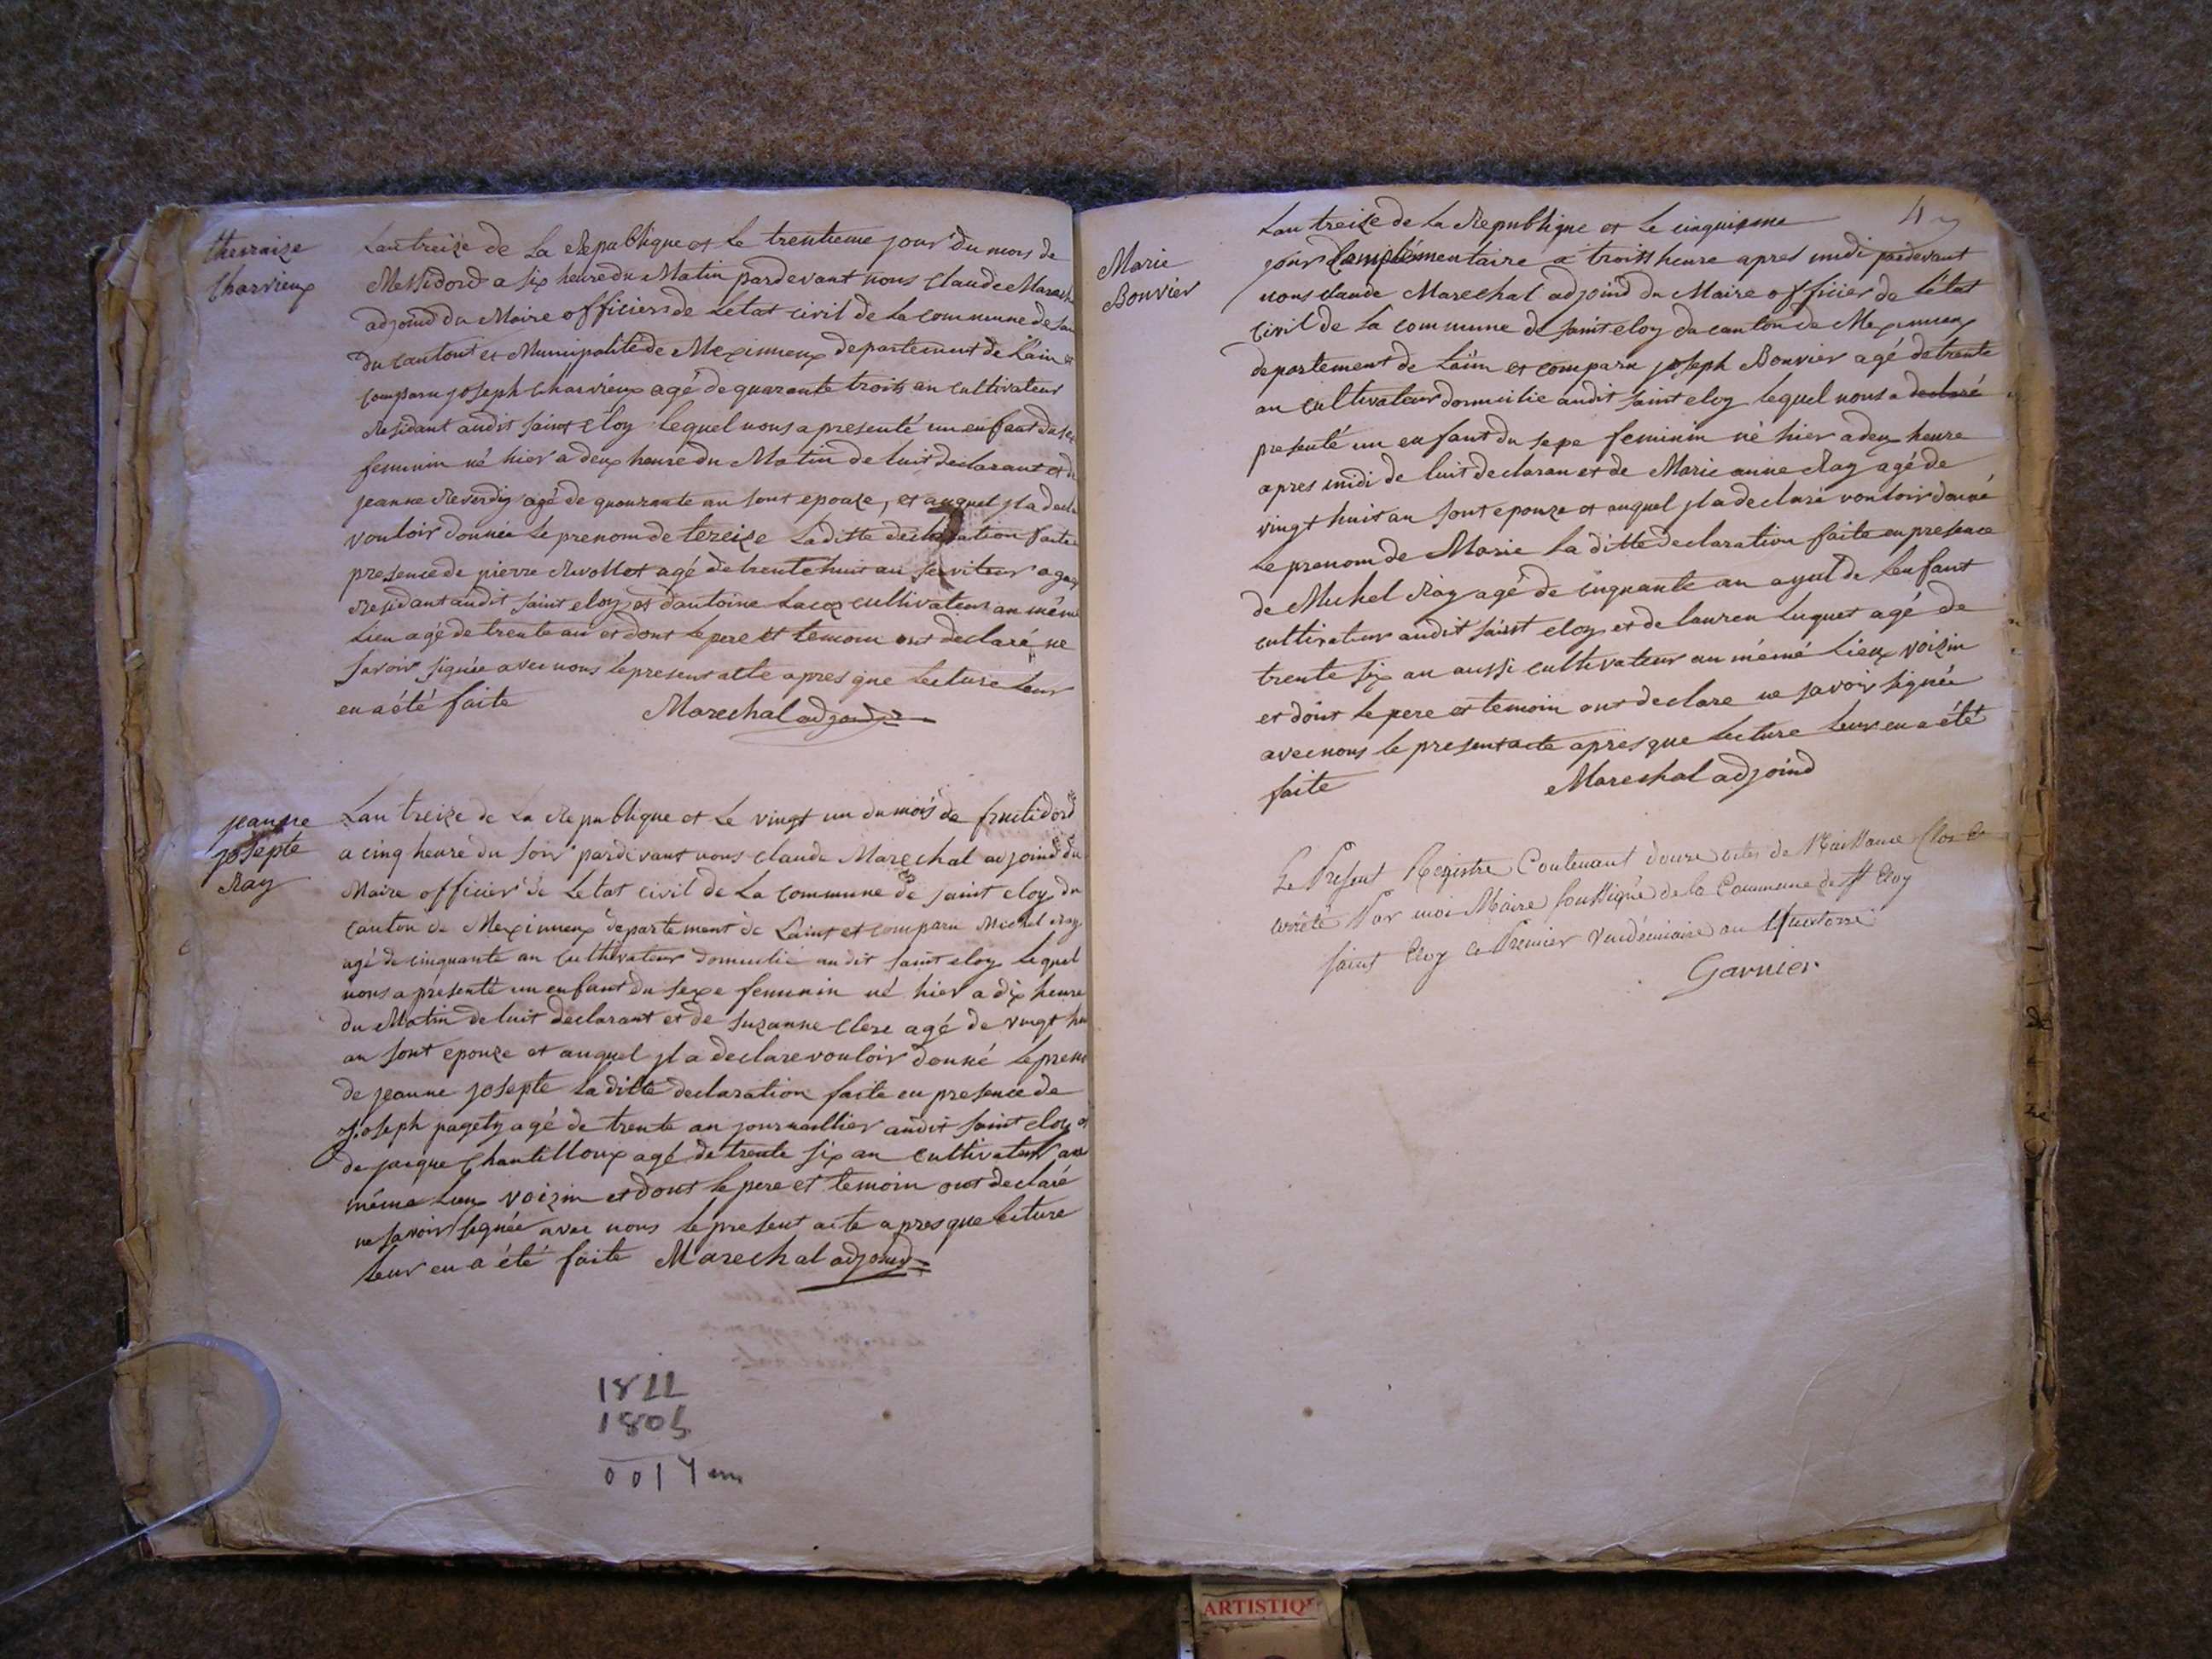 therraize
Charvieux
Lan treize de La Republique et le trentieme jour du mois de
Messidord a six heure du Matin pardevant nous Claude Marech
adjoind du Maire officier de Letat civil de la commune de
du cantont et Municipalité de Meximieux departement de Lain et
comparu joseph Charvieux agé de quarante troits an cultivateur
Residant audit saint Eloy lequel nous a presenté un enfant du sex
feminin né hier a deux heure du Matin de luit declarant et de
jeanne Reverdiy agé de quourante an sont epouze, et auquel jl a decla
vouloir donnée le prenom de tereize La ditte declaration faite
presence de pierre Rivollet agé de trente huit an serviteur a gag
Residant audit saint eloy et dantoine Lacoz cultivateur an même
Lieu agé de trente an et dont le pere et temoin ont declaré ne
savoir signée avec nous le present atte apres que Lecture leur
en a été faite Marechal adjoind
jeanne
josepte
Ray
Lan treize de La Republique et Le vingt un du mois de fructidord
a cinq heure du soir pardevant nous Claude Marechal adjoind du
Maire officier de Letat civil de La commune de saint eloy du
canton de Meximieux departement de Laint et comparu Michel Ray
agé de cinquante an cultivateur domicilié audit saint eloy lequel
nous a presenté un enfant du sexe feminin né hier a dix heure
du Matin de luit declarant et de suzanne Clere agé de vingt hu
an sont epouze et auquel jl a declare vouloir donné le pren
de jeanne josepte La ditte declaration faite en presence de
joseph pagety agé de trente an journallier audit saint eloy et
de jacque Chantilloux agé de trente six an cultivateur au
même Lieu voizin et dont le pere et temoin ont declaré
ne savoir signée avec nous le present acte apres que lecture
leur en a été faite Marechal adjoind
1822
1805
0017 an
4
Marie
Bonvier
Lan treize de La Republique et Le cinquieme
jour Complémentaire a troits heure apres midi pardevant
nous claude Marechal adjoind du Maire officier de létat
civil de La commune de saint eloy du canton de Meximieux
departement de Laiin et comparu joseph Bonvier agé de trente
an cultivateur domicilié audit saint eloy lequel nous a declaré
presenté un enfant du sexe feminin né hier a deux heure
apres midi de luit declaran et de Marie anne Ray agé de
vingt huit an sont epouze et auquel jl a declaré vouloir donné
Le prenom de Marie La ditte declaration faite en presence
de Michel Ray agé de cinquante an ayul de Lenfant
cultivateur audit saint eloy et de lauren Luquet agé de
trente six an aussi cultivateur au même Lieux voizin
et dont le pere et temoin ont declare ne savoir signée
avec nous le present acte apres que lecture leur en a été
faite Mareshal adjoind
Le Present Registre Contenant douze actes de Naissance Clos et
arrêté Par moi Maire soussigné de la Commune de St Eloy
saint Eloy ce Premier Vendémiaire an Quatorze
Garnier
ARTISTIQ